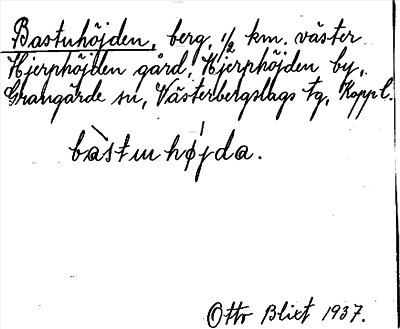 Bastuhöjden, berg, 1/2 km. väster
Hjerphöjden gård, Hjerphöjden by,
Grangärde sn, Västerbergslags tg, Koppl.
bàstuhø̀jda.
Otto Blixt 1937.